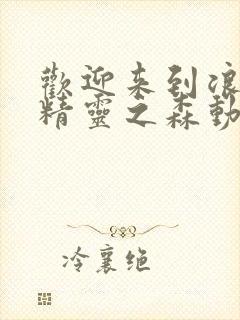 歡迎来到浪
精靈之森動
冷襄绝